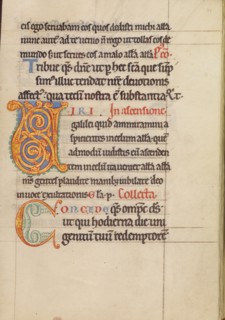 eis ego seruabam eos quos dedisti michi alła
nunc autē ad te uenio ñ rogo ut tollas eos de
mundo sꝫ ut serues eos a malo alła alła Pco᷑.
Tribue qs dn̄e ut p hec sc̄a que sūp
simꝰ illuc tendat nr̄e deuotionis
affectꝰ qua tecū nostra ē substantia
VIRI. In ascensione
galilei quid admiramini a
spicientes in celum alła quē
admodū uidistis eū ascenden
tem in celū ita ueniet alła alła
oms gentes plaudite manibꝫ iubilate deo
in uoce exultationis Collecta
Concede qs omps ds
ut qui hodierna die uni
genitū tuū redemptorē